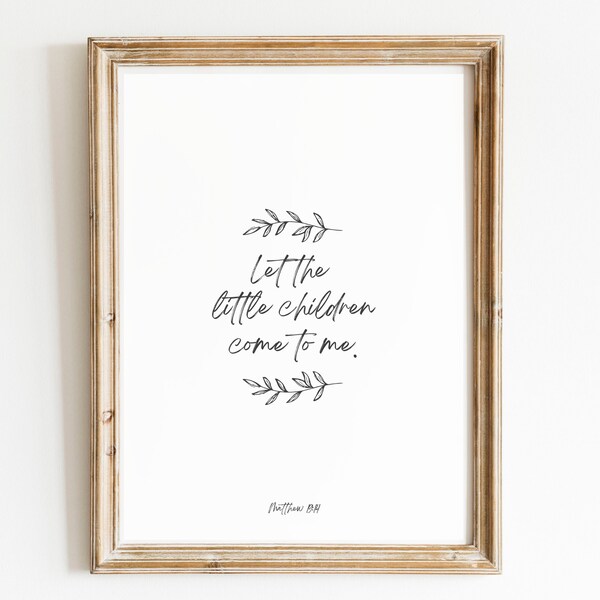 Let the
little children
come to me.
Matthew 19:14